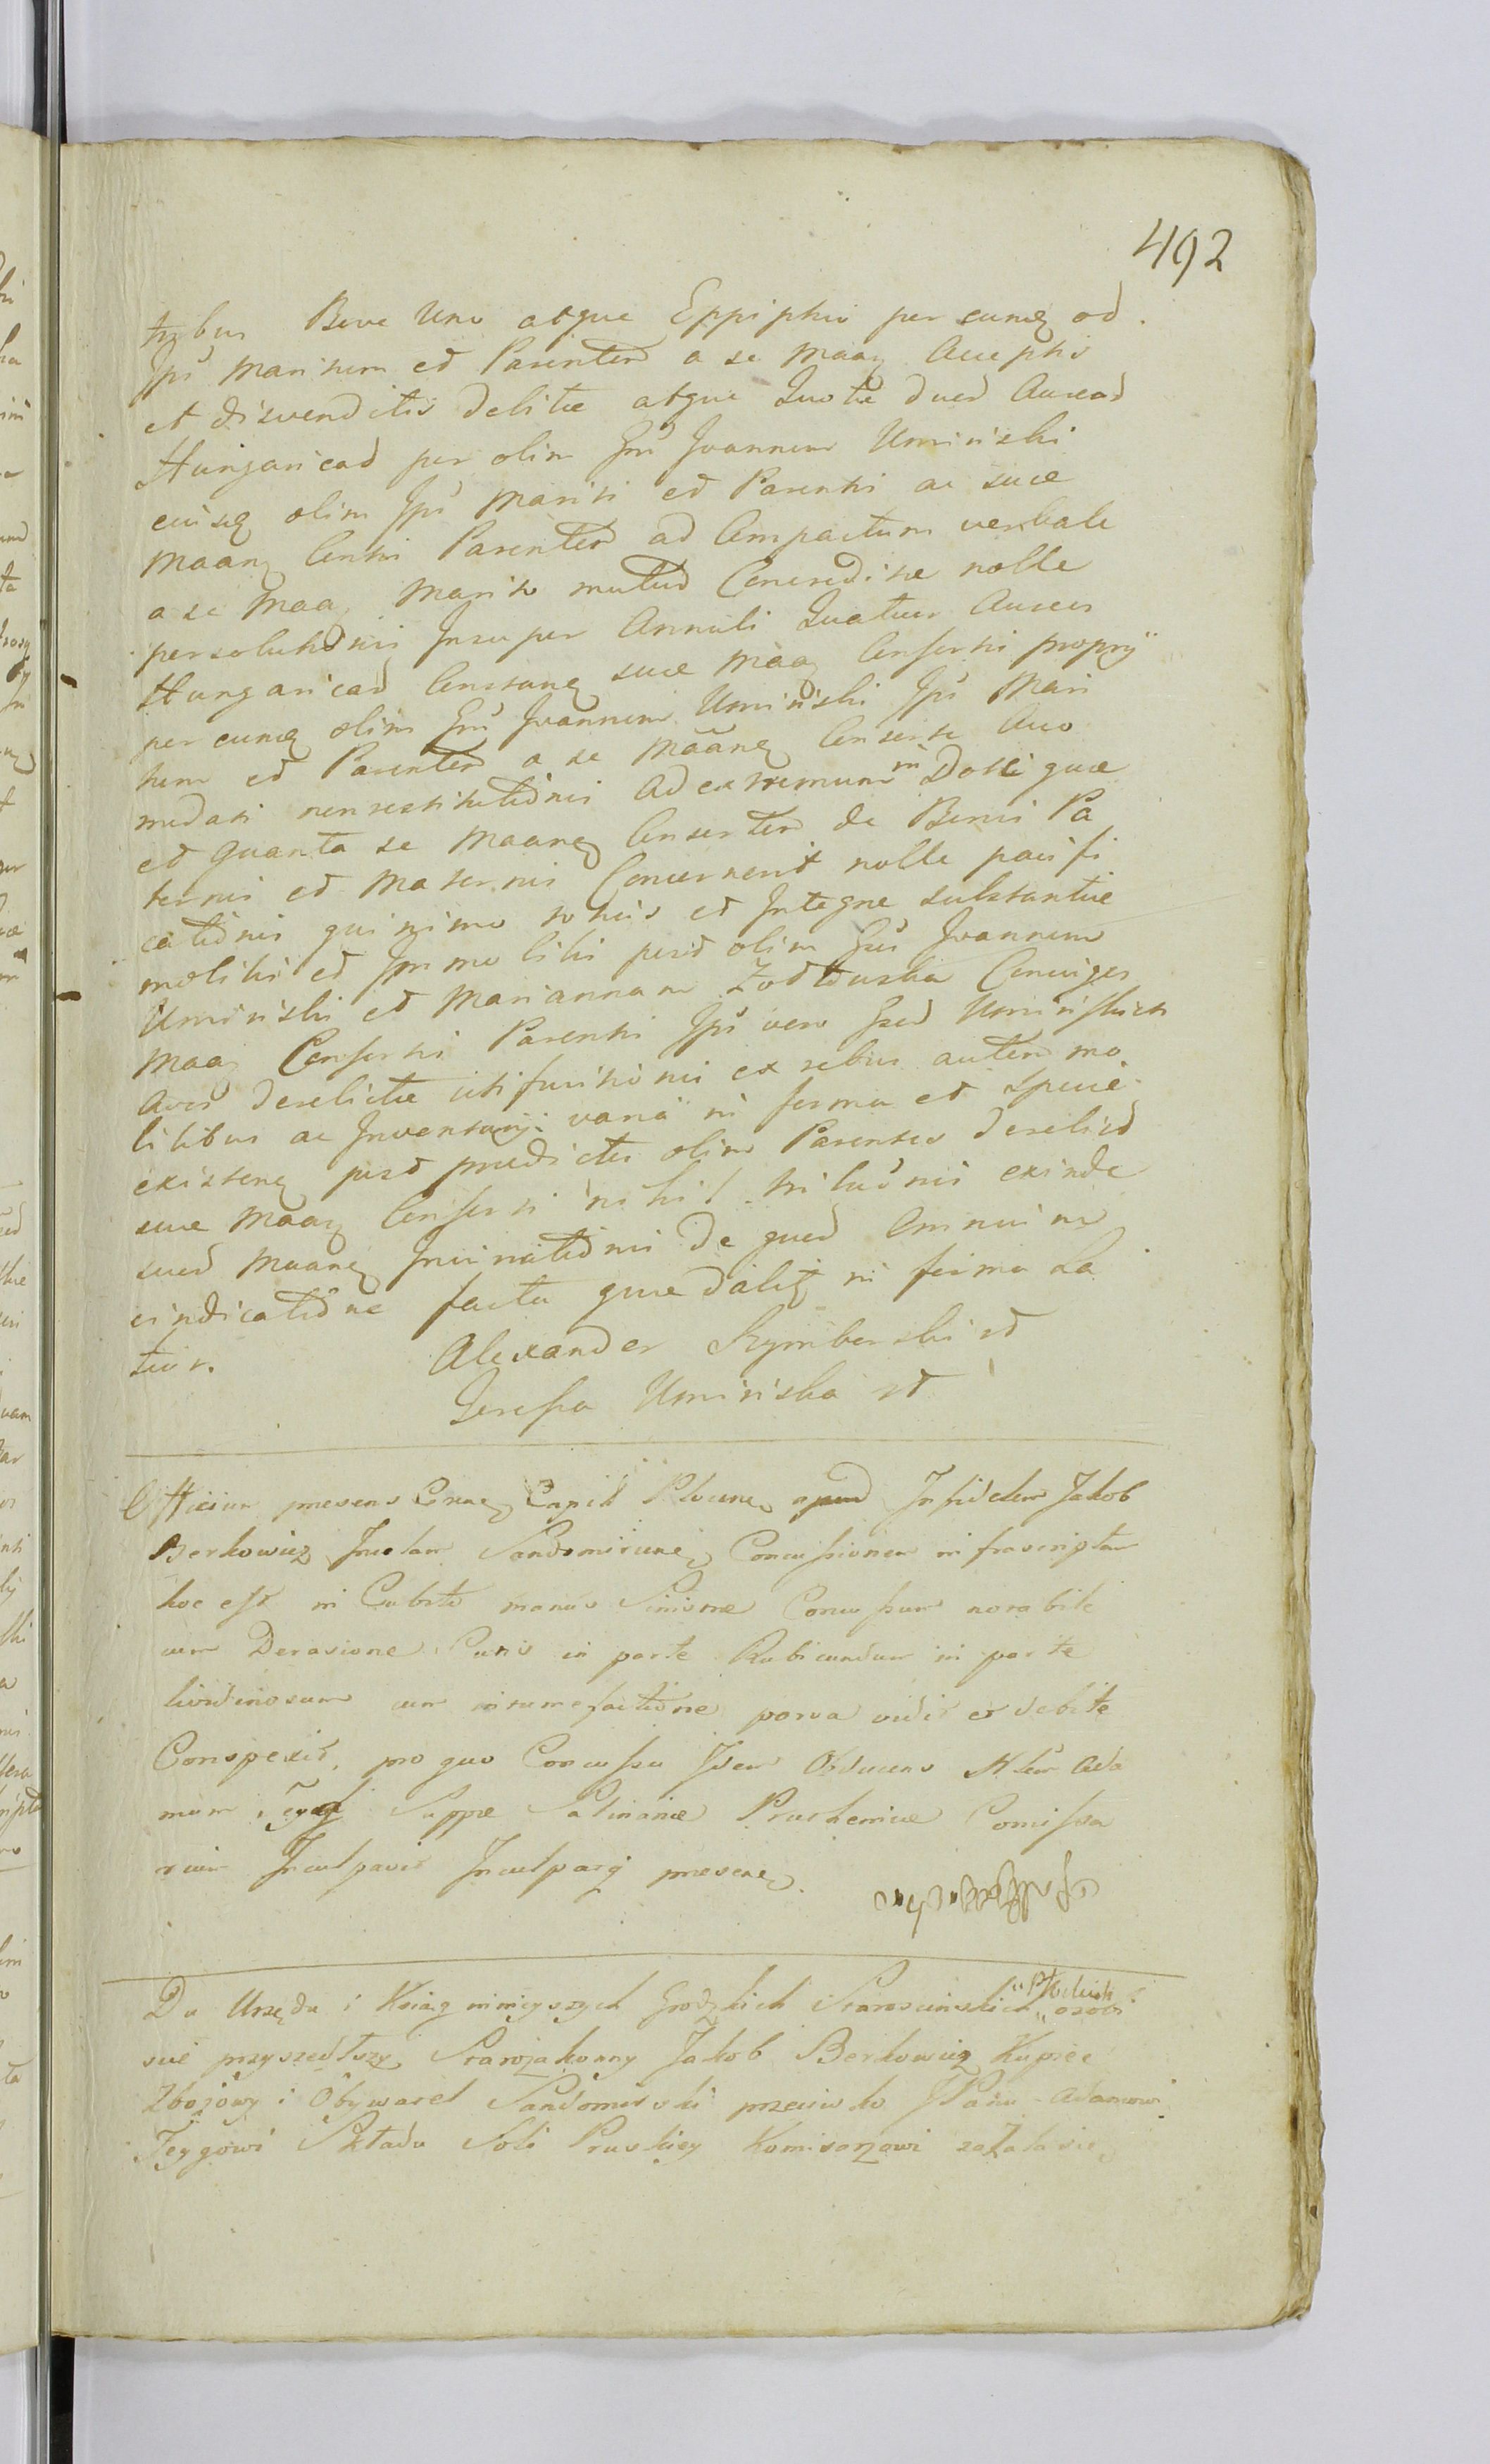 492
tribus Bove Uno atque Eppiphio per eumq. ad
Ipsi Maritum et Parentem a se Maaq. acceptis
et disvenditis Debitae atque Quotae dued Aureos
Hungaricad per olim Gsi Joannem Uminiski
eiusq. olim Ipsi Mariti et Parentis ac suae
Maanq. Consti Parentem ad Compactum verbale
a se Maaq. Marito mutuo Concreditae nolle
persolutionis Insuper Annuli Quatuor Aureos
Hungaricad Constanq. suae Maaq. Consorti proprij
per eumq. olim Gsi Joannem Uminiski Ipsi Mari
tum et Parentem a se Maanq. Consorte Acco
modati nonrestitutionis Ad extremum in Doti quae
et quanta se Maanq. Consortem de Bonis Pa
ternis et Maternis Concernerit nolle pacifi
cationis quinimo totius et Integrae substantiae
mobilis et Immobilis post olim Gsi Joannem
Uminiski et Mariannam Conjuges
Maaq. Consorti Parentis Ipsi vero Gsed Uminiskich
Avos Derelictae ex rebus autem mo
bilibus ac Inventarij varia in forma et specie
existenq. post praedictos olim Parentes derelict
suae Maaq. Consorti nihil tribuonis exinde
sued Maanq. De quod Omnium
vindicatione facta quae dalq. in forma La
tior. Alexander Szymberski st
Teressa Uminiska st
Officium presens Crae Capit Plocae apud Infidelem Jakob
Berkowicz Incolam Sandomiriene Concussionem infrascriptam
hoc est in Cubito manus Sinistrae Concussum notabile
cum Derasione Cutis in parte Rubicundum in parte
lividinosum cum intumefactione parva vidit et debite
Conspexit, pro quo Concussu Idem Obducens Adа
mum Teyg Suppae Salinariae Prusheniae Comissa
rium Inculpavit Inculparq. presene
Do Urzędu i Xiąg ninieyszych Grodzkich Starościńskich "Płockich" osobi
ście przyszedłszy Starozakonny Jakob Berkowicz Kupiec
Zbożowy i Obywatel Sandomirski przeciwko JPanu Adamowi
Teygowi Składu Soli Pruskiey Komisarzowi zażala się